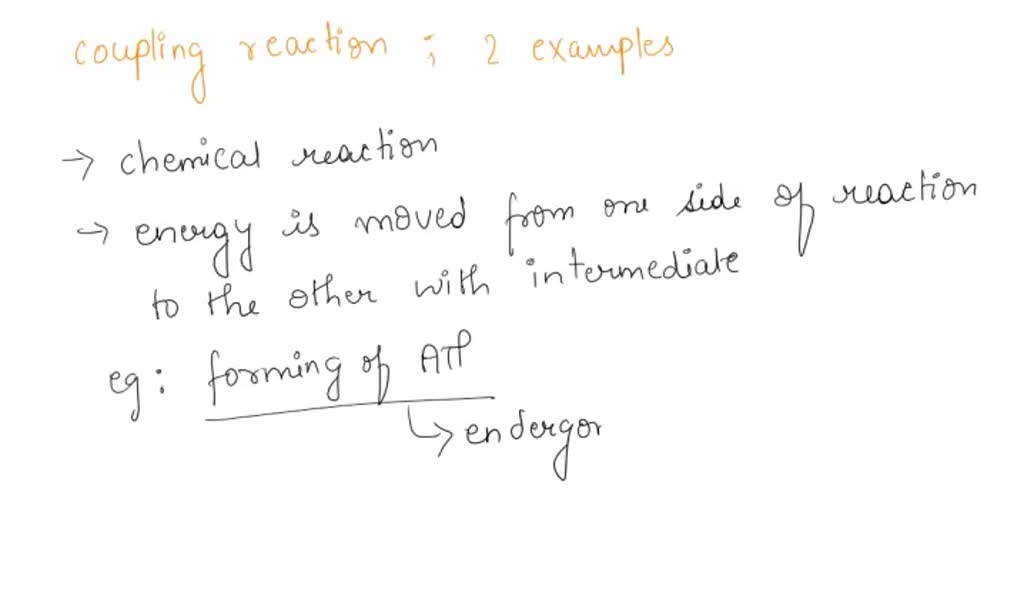 coupling reaction ; 2 examples
→ chemical reaction
→ energy is moved from one side of reaction
to the other with intermediate
eg : forming of ATP
↳ endergon